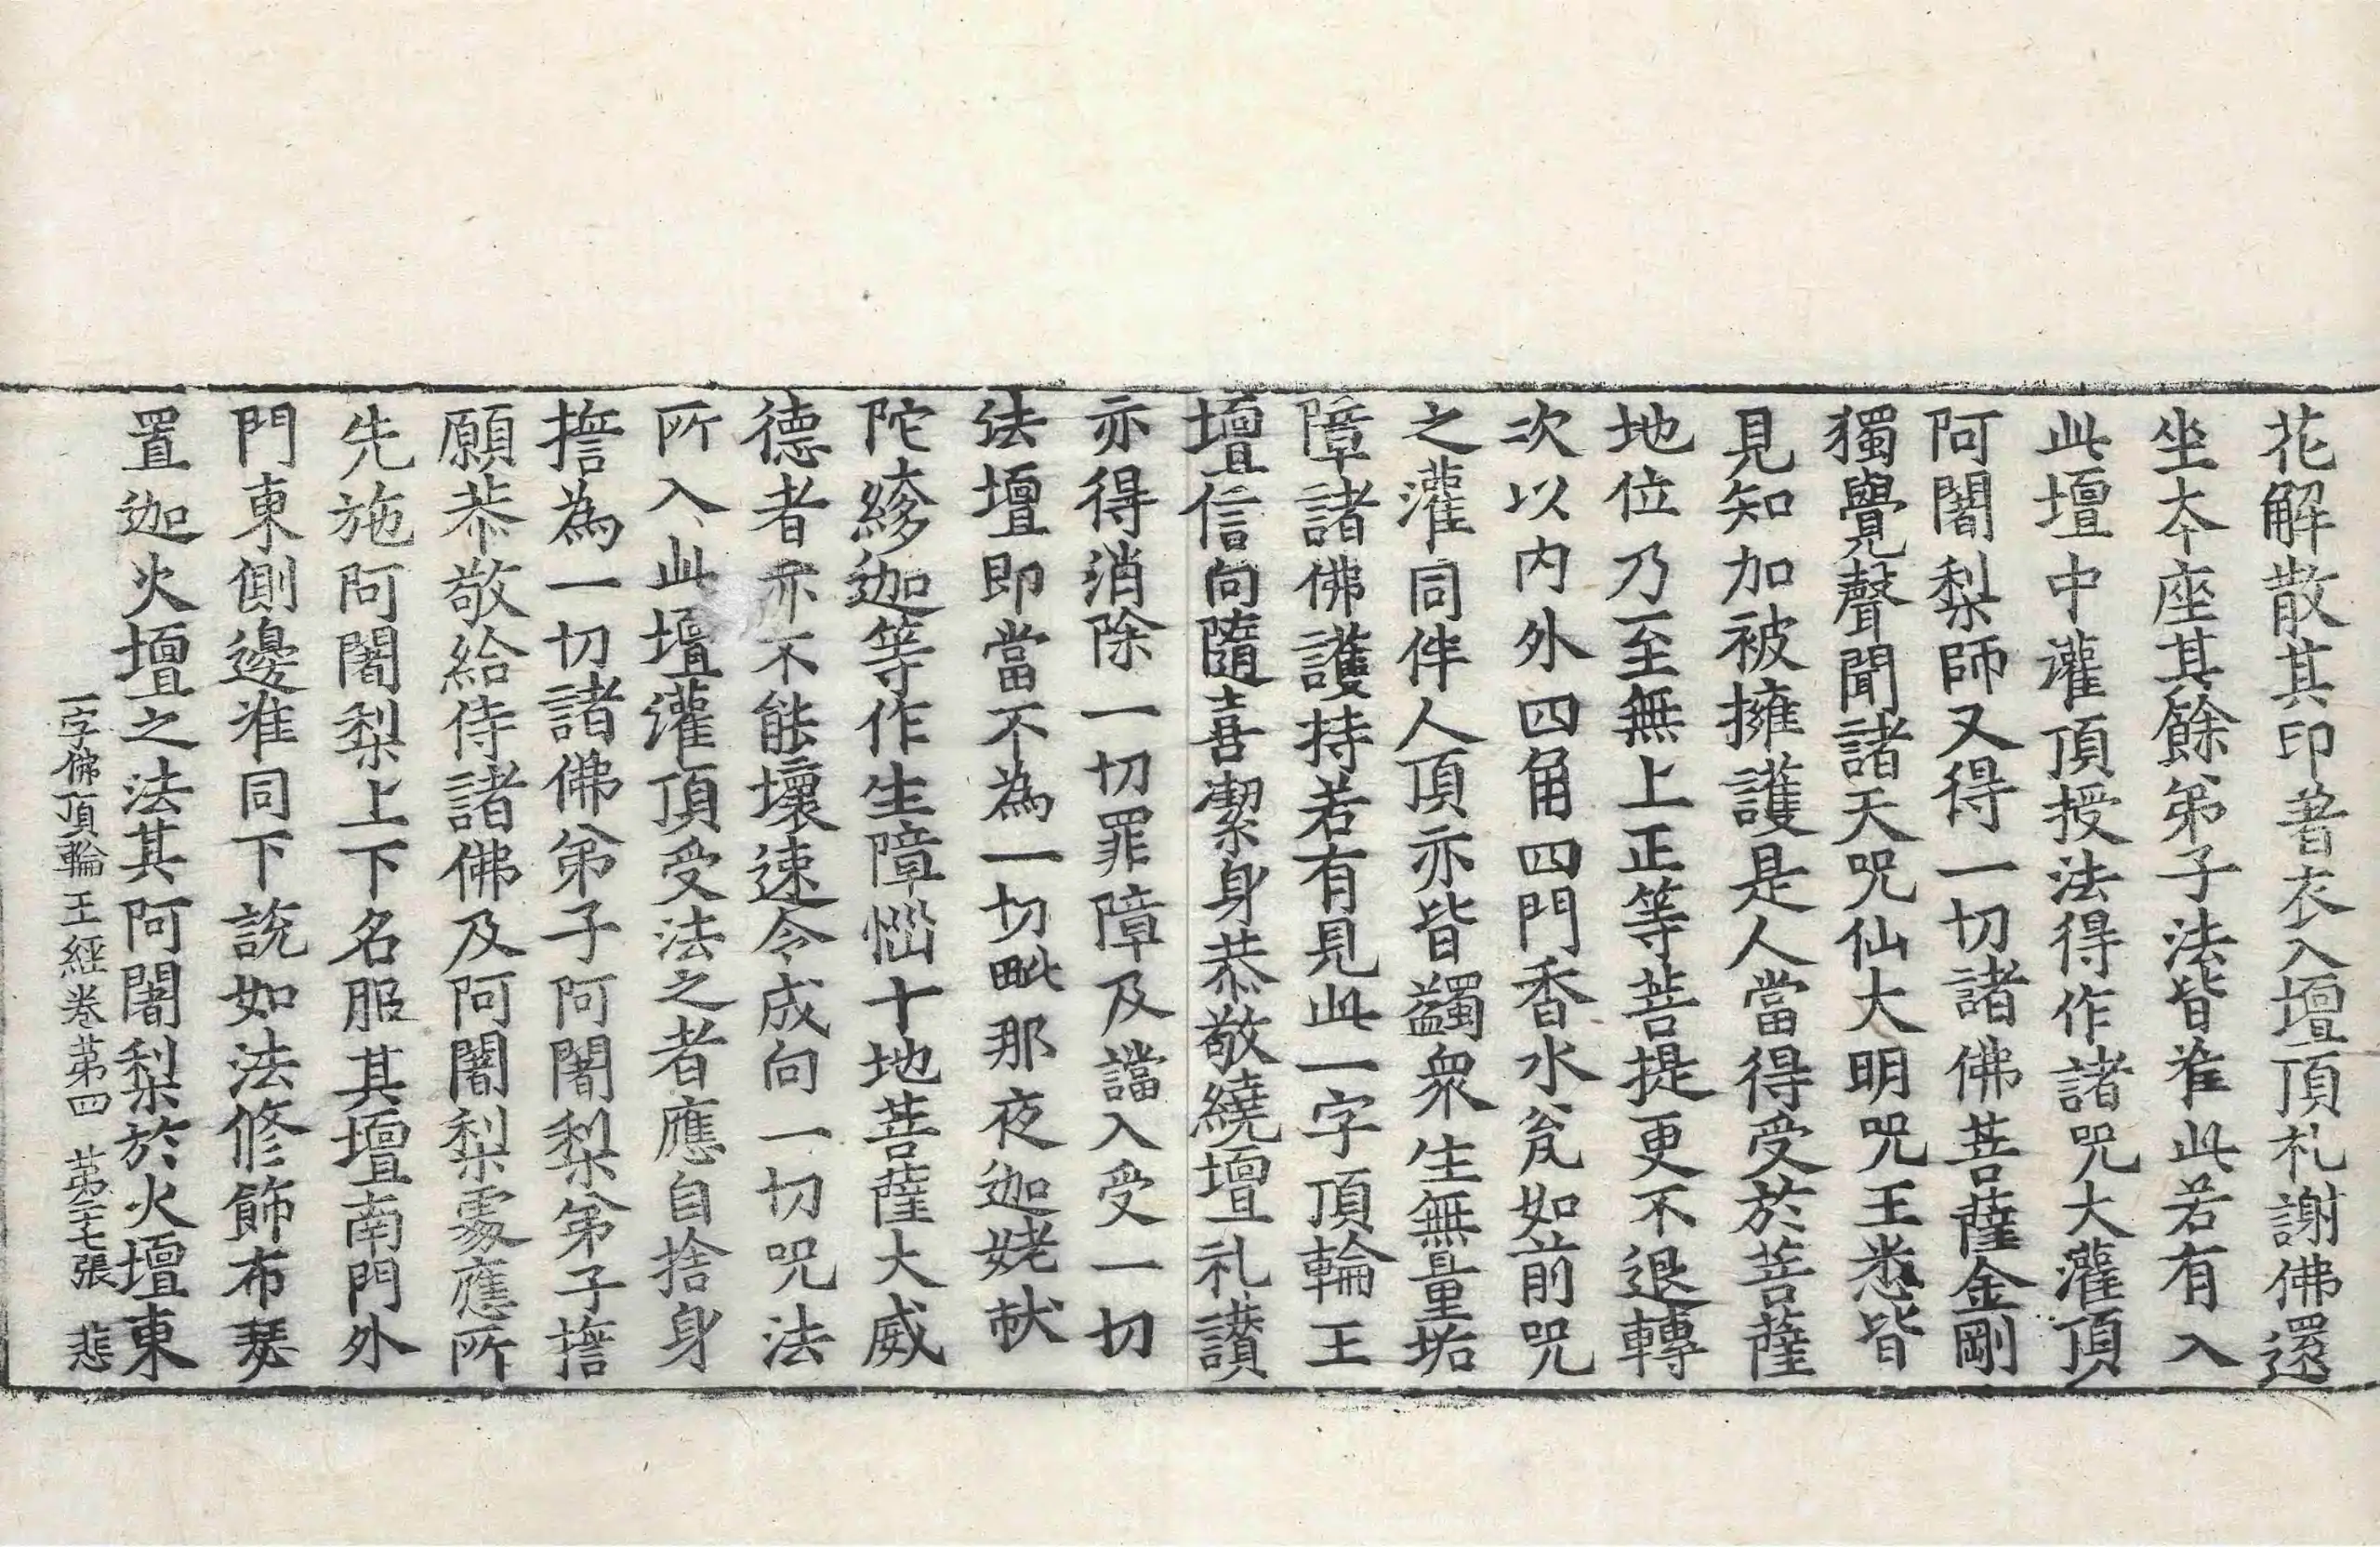 花解散其印著衣入壇頂礼謝佛還
坐夲座其餘弟子法皆准此若有入
此壇中灌頂授法得作諸咒大灌頂
阿闍梨師又得一切諸佛菩薩金剛
獨覺聲聞諸天咒仙大明咒王悉皆
見知加被擁護是人當得受於菩薩
地位乃至無上正等菩提更不退轉
次以内外四角四門香水瓮如前咒
之灌同伴人頂亦皆蠲衆生無量垢
障諸佛護持若有見此一字頂輪王
壇信向隨喜潔身恭敬繞壇礼讃
亦得消除一切罪障及讜入受一切
法壇即當不為一切毗那夜迦姥猌
陀𦂶迦等作生障惱十地菩薩大威
德者亦不能壞速令成向一切咒法
所入此壇灌頂受法之者應自捨身
擔為一切諸佛弟子阿闍梨弟子擔
願恭敬給侍諸佛及阿闍梨處應所
先施阿闍梨上下名服其壇南門外
門東側邊准同下說如法修飾布㻎
置迦火壇之法其阿闍梨於火壇東
一字佛頂輪王經卷苐四 苐二十七張 悲